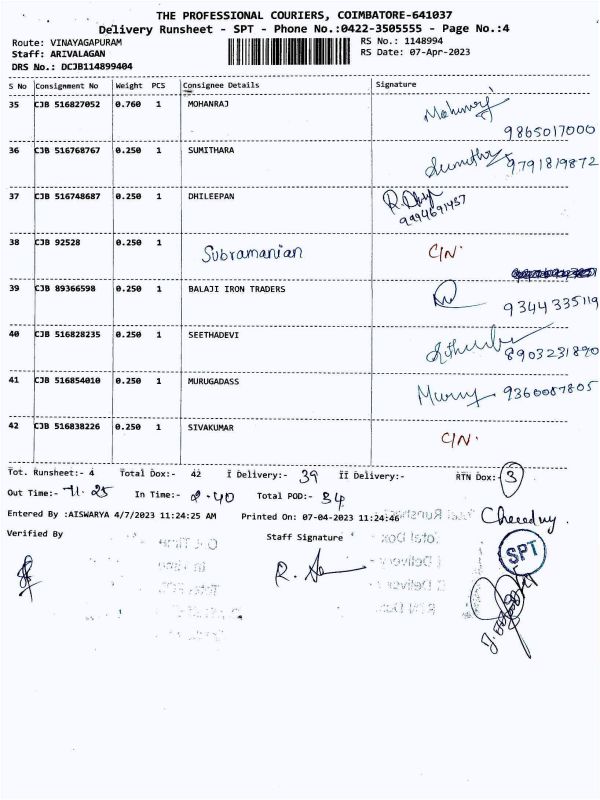 THE PROFESSIONAL COURIERS, COIMBATORE-641037
Delivery Runsheet - SPT - Phone No.:0422-3505555 - Page No.:4
Route: VINAYAGAPURAM RS No.: 1148994
Staff: ARIVALAGAN RS Date: 07-Apr-2023
DRS No.: DCJB114899404
S No Consignment No Weight PCS Consignee Details Signature
35 CJB 516827052 0.760 1 MOHANRAJ Mohanraj
9865017000
36 CJB 516768767 0.250 1 SUMITHARA Sumithra 9791819872
37 CJB 516748687 0.250 1 DHILEEPAN
9994691457
38 CJB 92528 0.250 1 Subramanian C/N.
39 CJB 89366598 0.250 1 BALAJI IRON TRADERS
9344335119
40 CJB 516828235 0.250 1 SEETHADEVI
8903231890
41 CJB 516854010 0.250 1 MURUGADASS 9360087805
42 CJB 516838226 0.250 1 SIVAKUMAR C/N.
Tot. Runsheet:- 4 Total Dox:- 42 I Delivery:- 39 II Delivery:- RTN Dox:- 3
Out Time:- 11.25 In Time:- 2.40 Total POD:- 34
Entered By :AISWARYA 4/7/2023 11:24:25 AM Printed On: 07-04-2023 11:24:46
Verified By Staff Signature
SPT